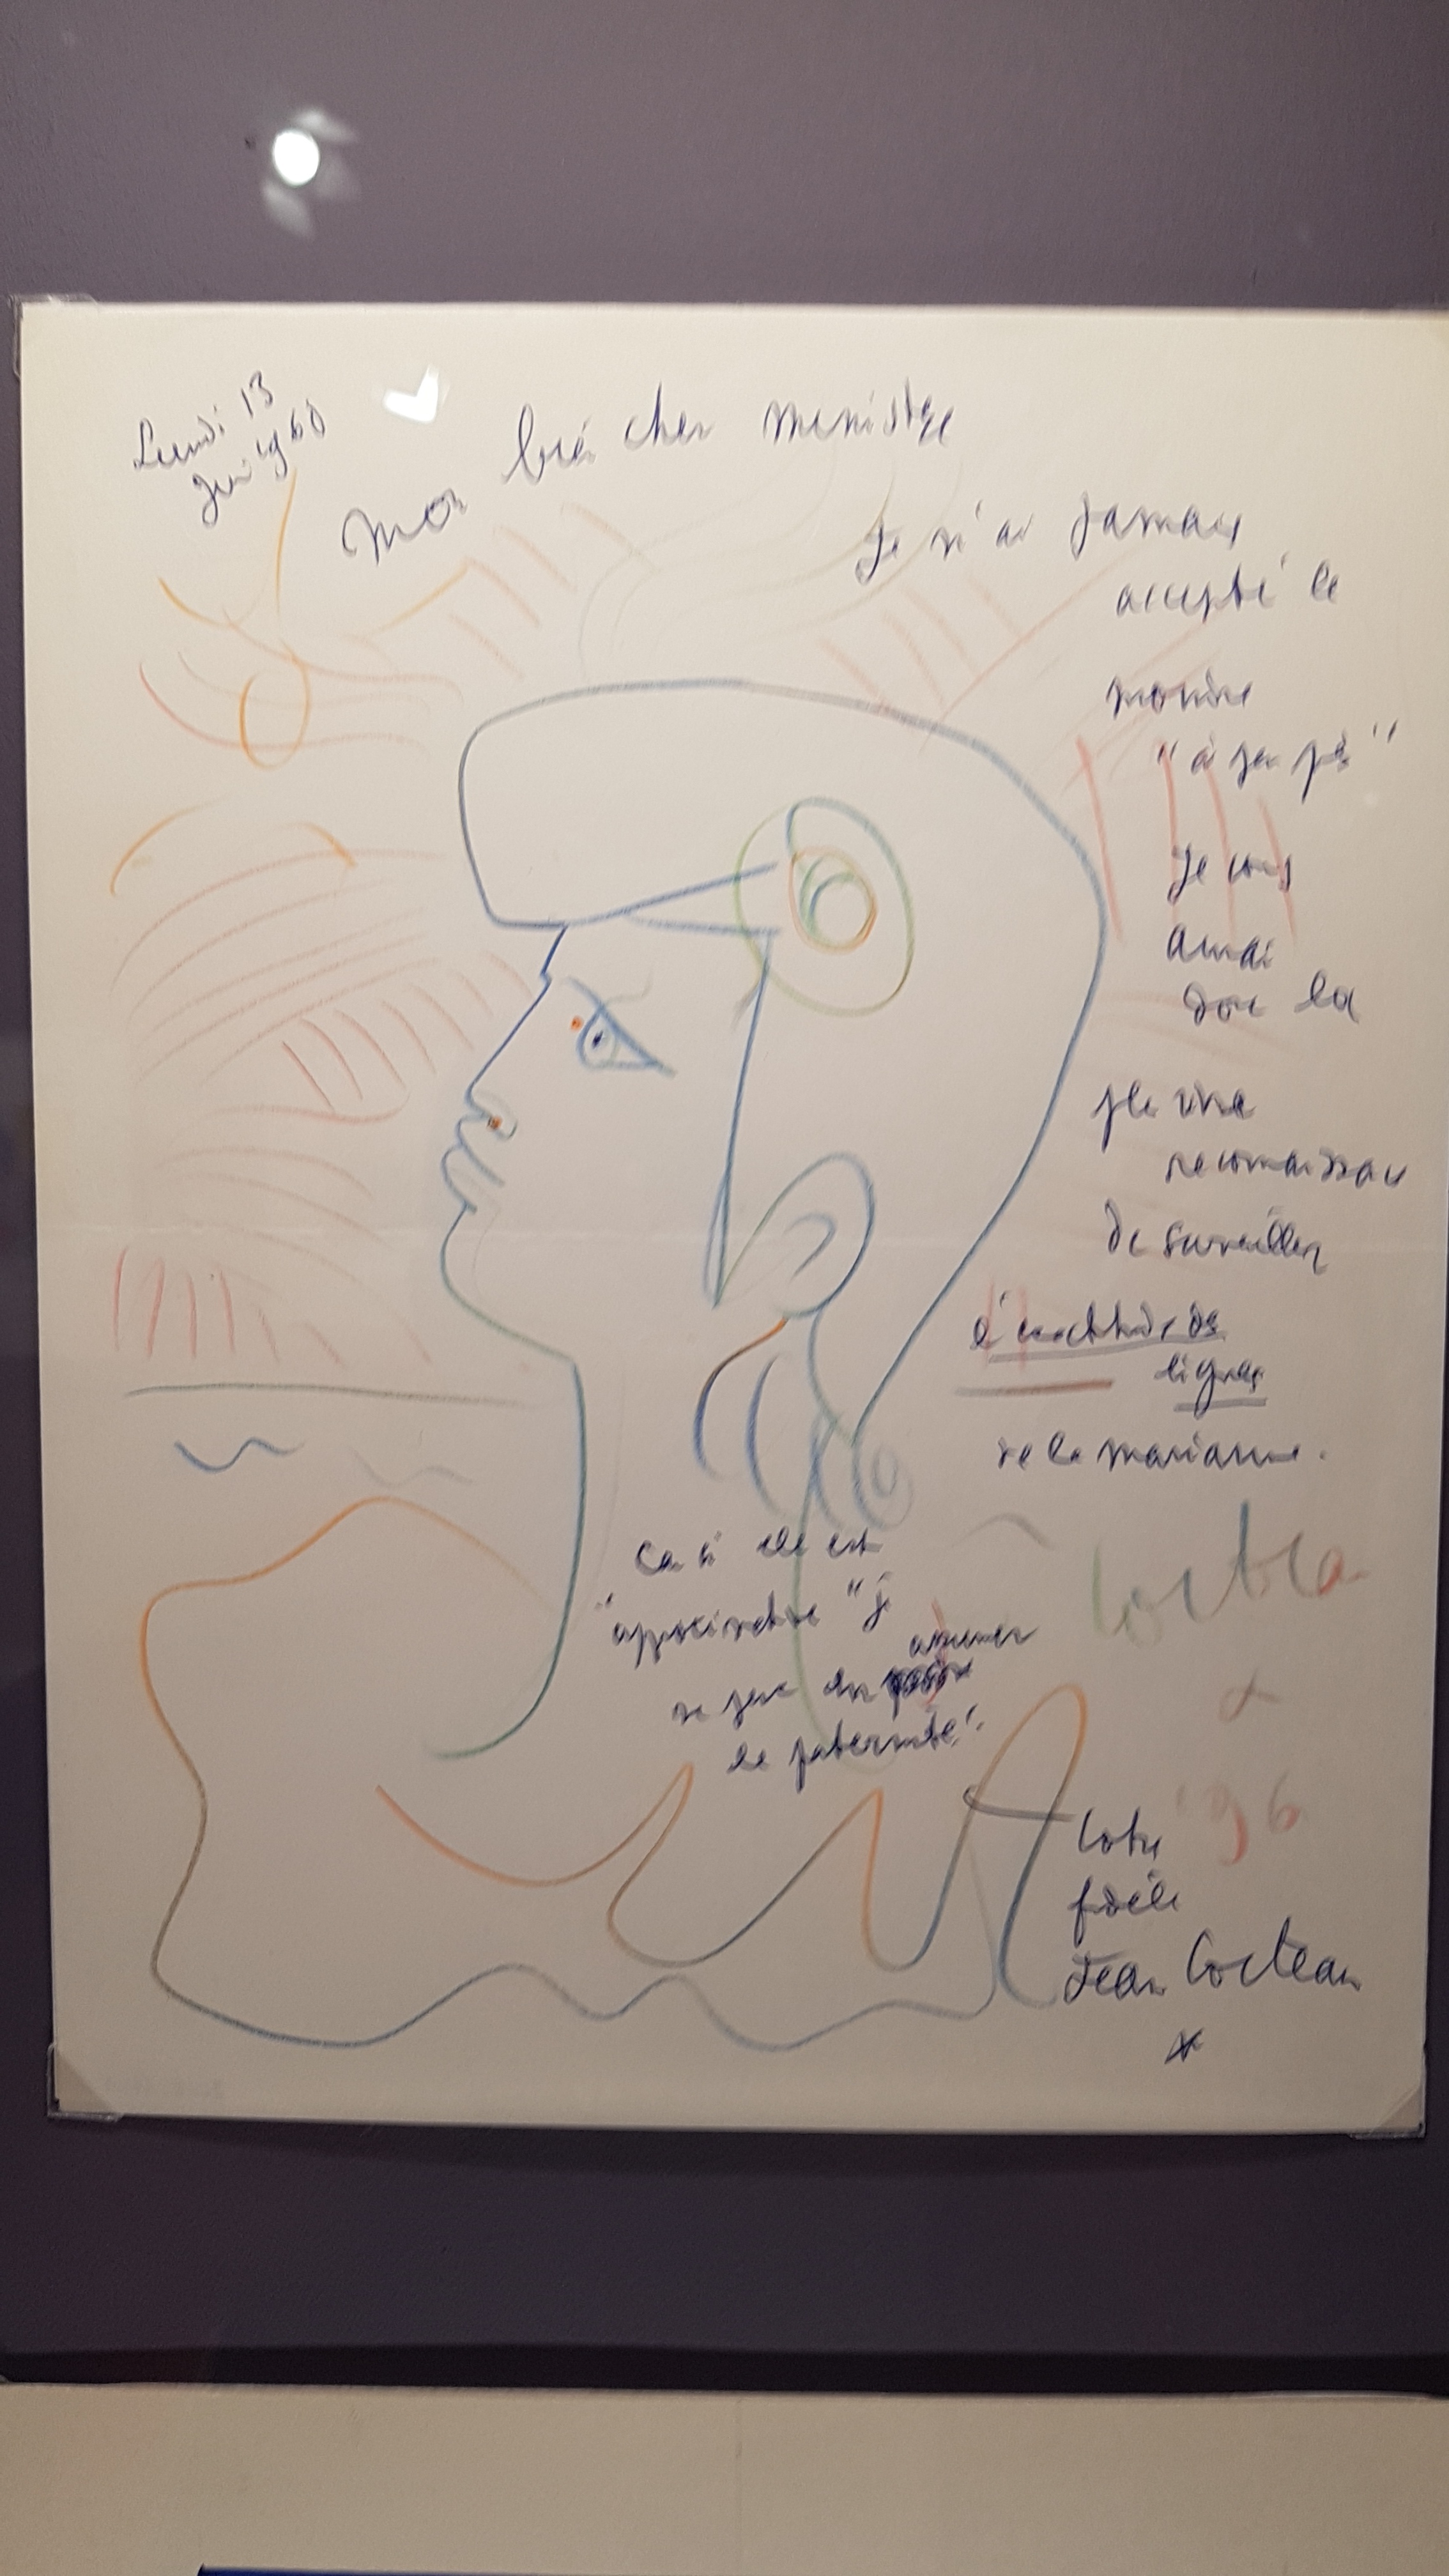 Lundi 13
Juin 1960
Mon très cher ministre
Je n'ai jamais
accepté le
moindre
"à peu près"
Je vous
aurai
donc la
plus vive
reconnaissance
de surveiller
l'exactitude des
lignes
de la marianne.
Car si elle est
"approximative" je
ne peux en assumer
la paternité.
Votre
fidèle
Jean Cocteau
*